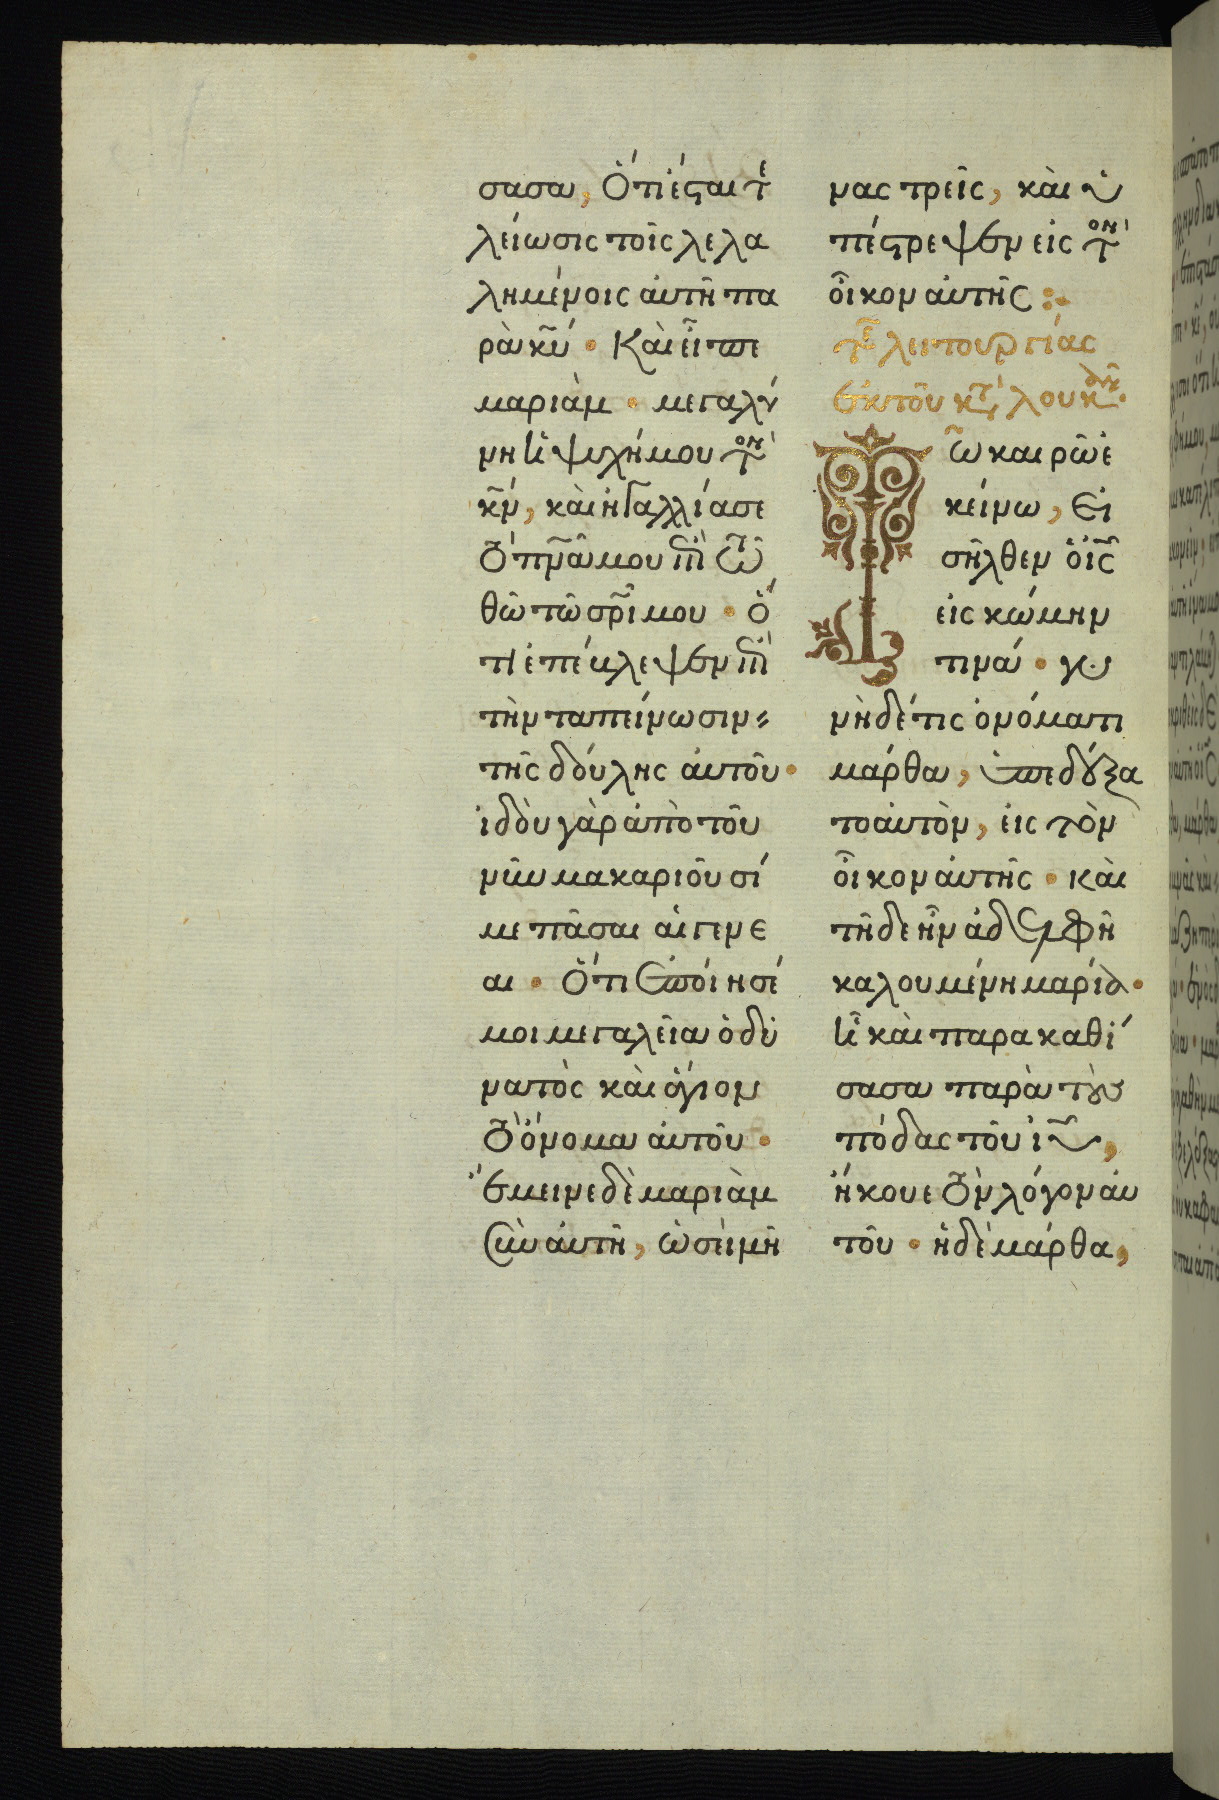 σασα, ὅτι ἔσται τε
λείωσις τοῖς λελα
λημένοις αὐτῇ πα
ρὰ κυ̅. Καὶ εἶπε
μαριὰμ. μεγαλύ
νη ἡ ψυχή μου τὸν
κν̅, καὶ ἠγαλλίασε
τὸ πνα̅ μου ἐπὶ τῶ
θῶ τῶ σρι̅ μου. ὅ
τι ἐπέβλεψεν ἐπὶ
τὴν ταπείνωσιν
τῆς δούλης αὐτοῦ.
ἰδοὺ γὰρ ἀπὸ τοῦ
νῦν μακαριοῦσί
με πᾶσαι αἱ γενε
αι. ὅτι ἐποίησέ
μοι μεγαλεῖα ὁ δυ
νατὸς καὶ ἅγιον
τὸ ὄνομα αὐτοῦ.
ἔμεινε δὲ μαριὰμ
σὺν αὐτῇ, ὡσεὶ μῆ
νας τρεῖς, καὶ ὑ
πέστρεψεν εἰς τὸν
οἶκον αὐτῆς:
τῆς λειτουργίας
ἐκ τοῦ κτ̅ λουκᾶν.
Τῶ καιρῶ ἐ
κείνω, Εἰ
σῆλθεν ὁ ις̅
εἰς κώμην
τινά. γυ
νὴ δέ τις ὀνόματι
μάρθα, ὑπεδέξα
το αὐτὸν, εἰς τὸν
οἶκον αὐτῆς. καὶ
τῆδε ἦν ἀδελφὴ
καλουμένη μαρία.
ἣ καὶ παρακαθί
σασα παρὰ τοὺς
πόδας τοῦ ιυ̅,
ἤκουε τὸν λόγον αὐ
τοῦ. ἡ δὲ μάρθα,